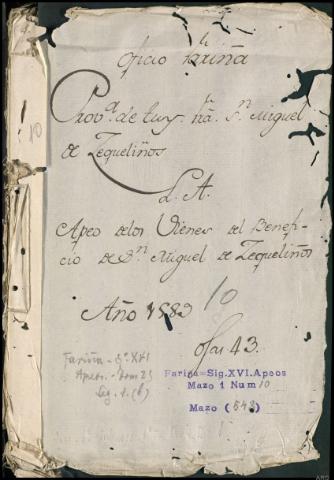 oficio fariña
Prov.ª de tuy. S.n Miguel
de Zequeliños
L. A.
Apeo delos Vienes del Benefi-
cio de S.n Miguel de Zequeliños
Año 1583
10
ofas 43.
10
Fariña - Sº XVI
Apeos.
Leg. 1. (b)
Fariña=Sig.XVI.Apeos
Mazo 1 Num 10
Mazo (548)